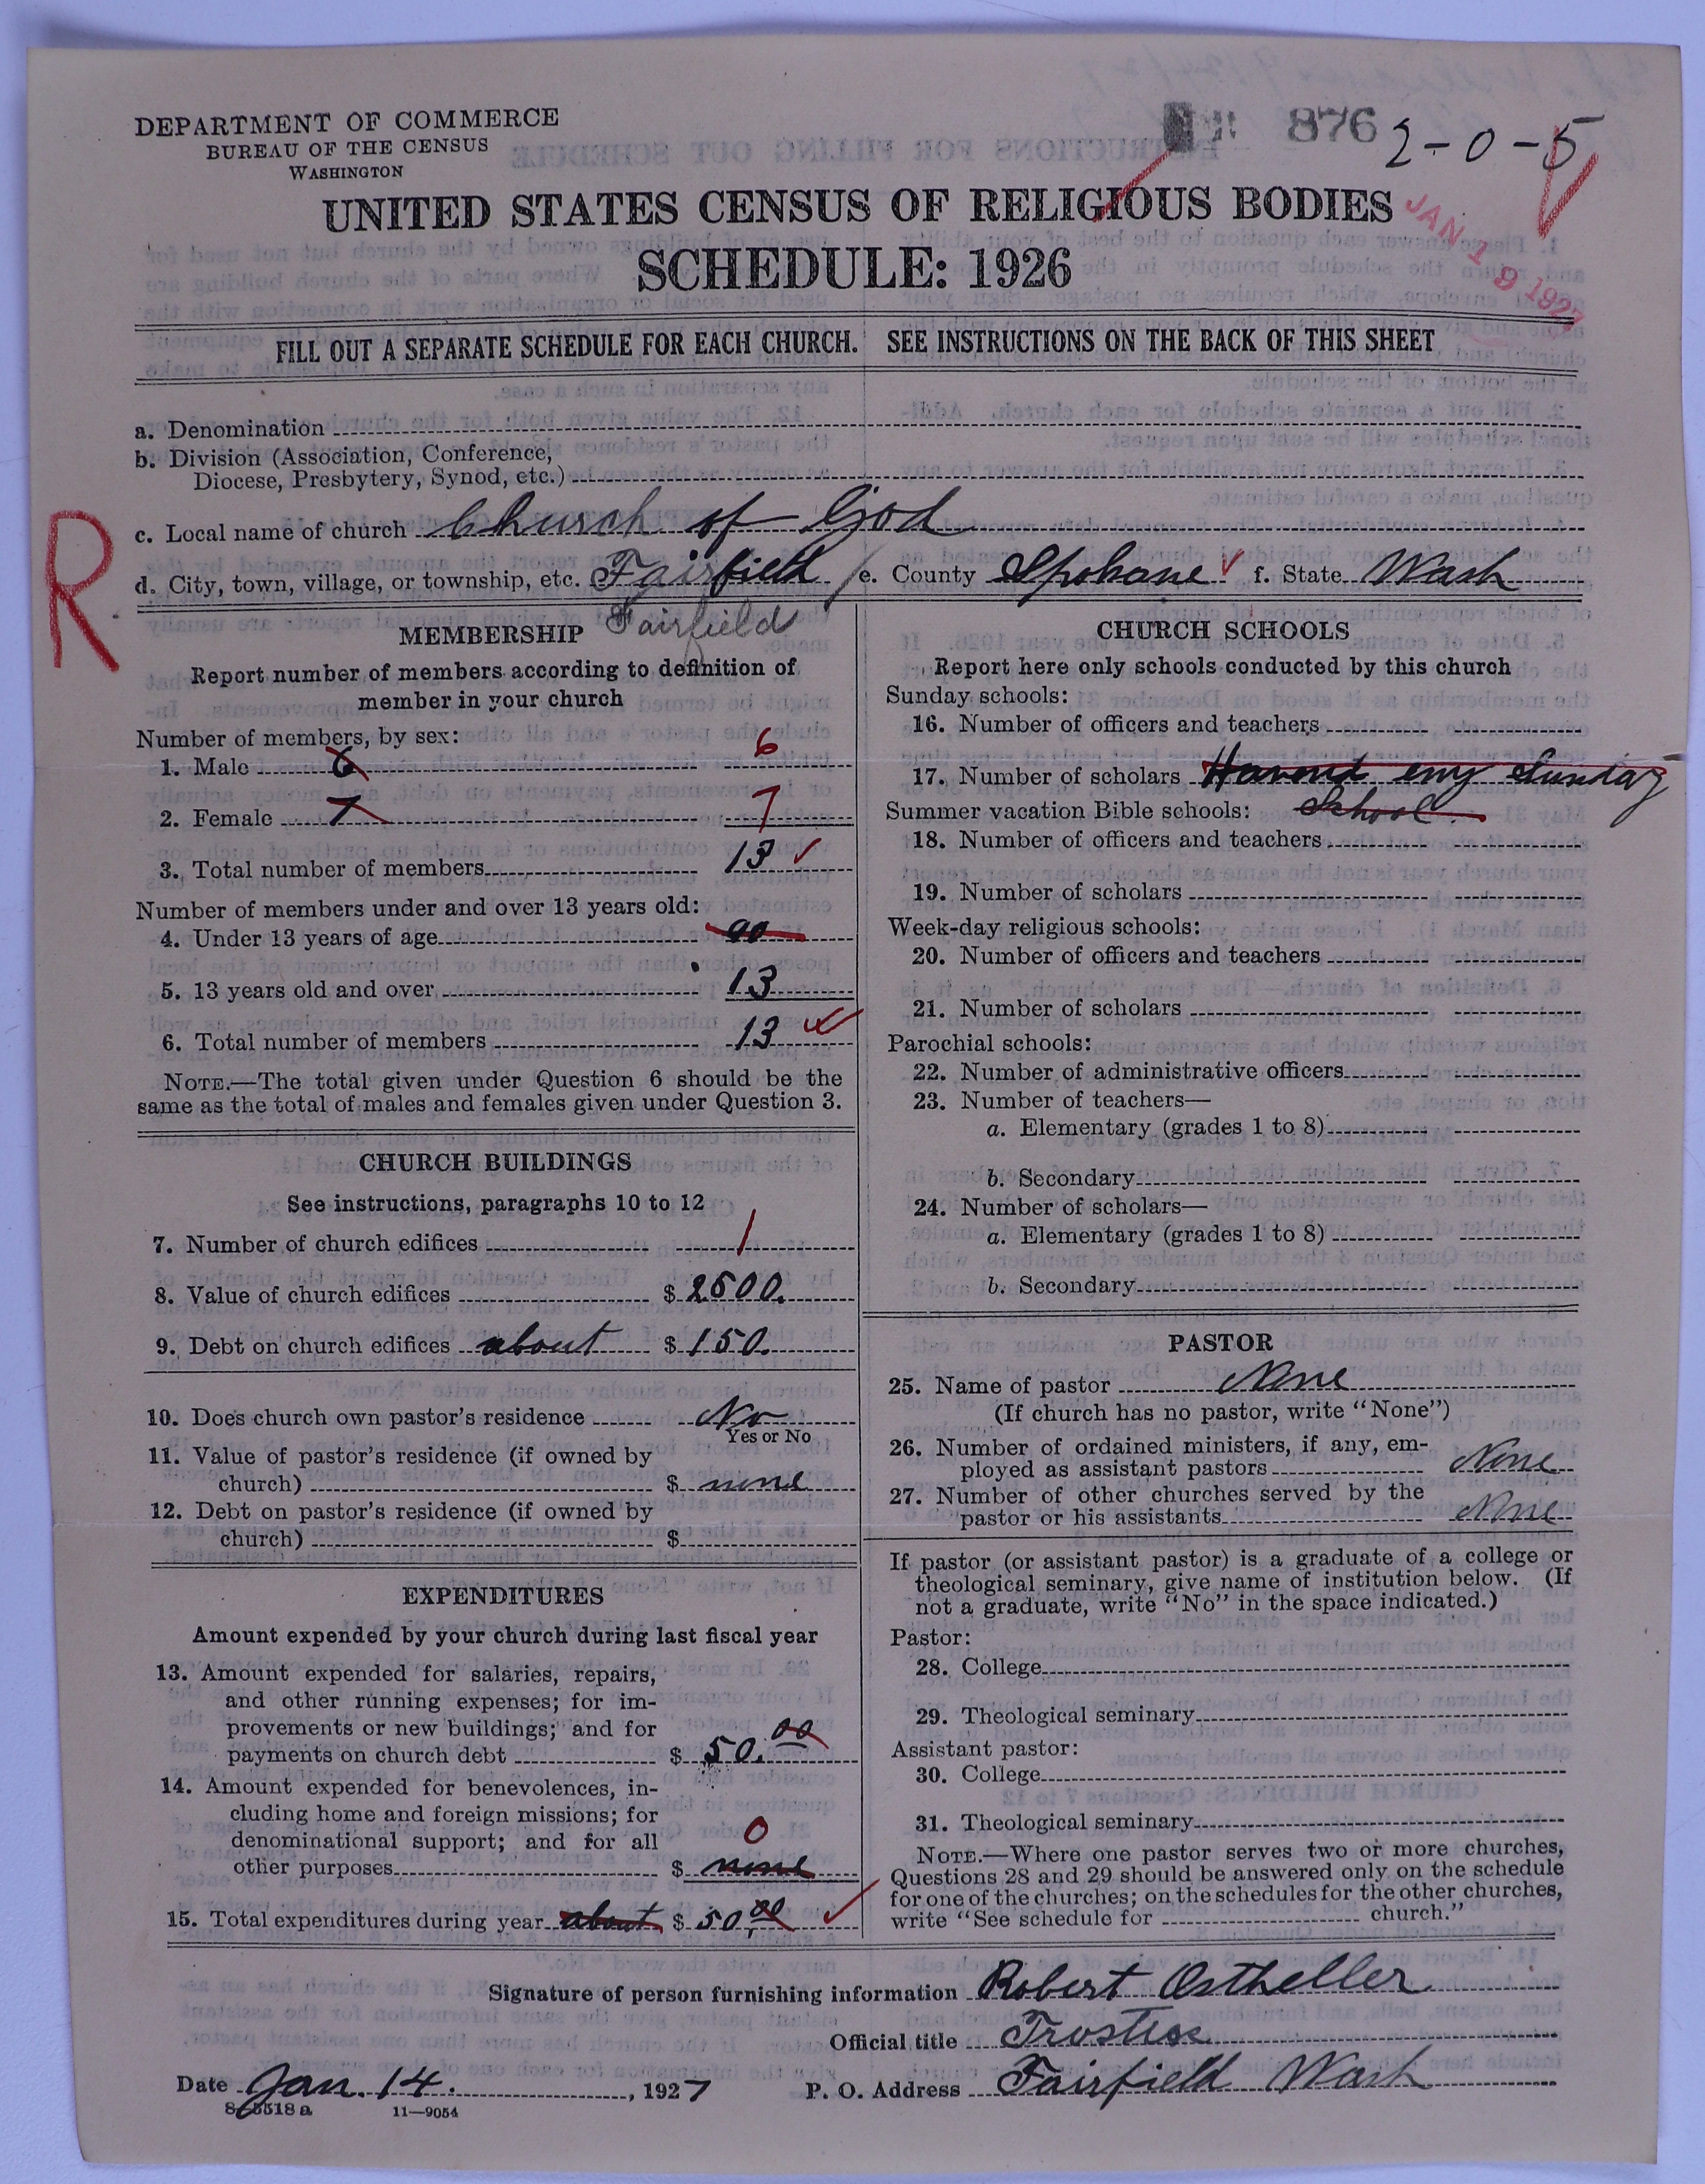 DEPARTMENT OF COMMERCE
BUREAU OF THE CENSUS
WASHINGTON
876
2-0-5
UNITED STATES CENSUS OF RELIGIOUS BODIES
SCHEDULE: 1926
JAN 19 1927
FILL OUT A SEPARATE SCHEDULE FOR EACH CHURCH. SEE INSTRUCTIONS ON THE BACK OF THIS SHEET
a. Denomination
b. Division (Association, Conference,
Diocese, Presbytery, Synod, etc.)
R
c. Local name of church Church of God
d. City, town, village, or township, etc. Fairfield e. County Spokane f. State Wash
Fairfield
MEMBERSHIP
Report number of members according to definition of
member in your church
Number of members, by sex:
1. Male 6 6
2. Female 7 7
3. Total number of members 13
Number of members under and over 13 years old:
4. Under 13 years of age 00
5. 13 years old and over 13
6. Total number of members 13
NOTE.—The total given under Question 6 should be the
same as the total of males and females given under Question 3.
CHURCH BUILDINGS
See instructions, paragraphs 10 to 12
7. Number of church edifices 1
8. Value of church edifices $ 2500.
9. Debt on church edifices about $ 150.
10. Does church own pastor's residence No
Yes or No
11. Value of pastor's residence (if owned by
church) $ none
12. Debt on pastor's residence (if owned by
church) $
EXPENDITURES
Amount expended by your church during last fiscal year
13. Amount expended for salaries, repairs,
and other running expenses; for im-
provements or new buildings; and for
payments on church debt $ 50.00
14. Amount expended for benevolences, in-
cluding home and foreign missions; for
denominational support; and for all 0
other purposes $ none
15. Total expenditures during year about $ 50.00
CHURCH SCHOOLS
Report here only schools conducted by this church
Sunday schools:
16. Number of officers and teachers
17. Number of scholars Havend eny Sunday
Summer vacation Bible schools: School.
18. Number of officers and teachers
19. Number of scholars
Week-day religious schools:
20. Number of officers and teachers
21. Number of scholars
Parochial schools:
22. Number of administrative officers
23. Number of teachers—
a. Elementary (grades 1 to 8)
b. Secondary
24. Number of scholars—
a. Elementary (grades 1 to 8)
b. Secondary
PASTOR
25. Name of pastor None
(If church has no pastor, write "None")
26. Number of ordained ministers, if any, em-
ployed as assistant pastors None
27. Number of other churches served by the
pastor or his assistants None
If pastor (or assistant pastor) is a graduate of a college or
theological seminary, give name of institution below. (If
not a graduate, write "No" in the space indicated.)
Pastor:
28. College
29. Theological seminary
Assistant pastor:
30. College
31. Theological seminary
NOTE.—Where one pastor serves two or more churches,
Questions 28 and 29 should be answered only on the schedule
for one of the churches; on the schedules for the other churches,
write "See schedule for church."
Signature of person furnishing information Robert Ostheller
Official title Trostese
Date Jan. 14., 1927 P. O. Address Fairfield Wash
8-5518 a 11—9054